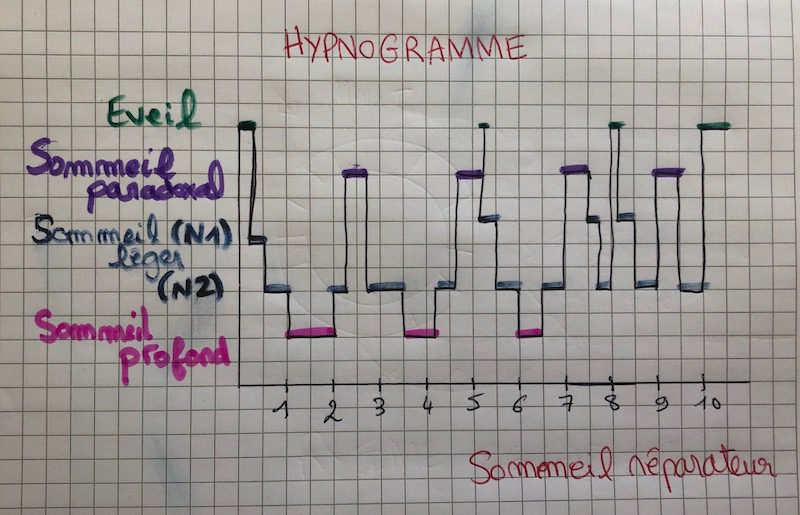 HYPNOGRAMME
Eveil
Sommeil
paradoxal
Sommeil (N1)
léger
(N2)
Sommeil
profond
1 2 3 4 5 6 7 8 9 10
Sommeil réparateur